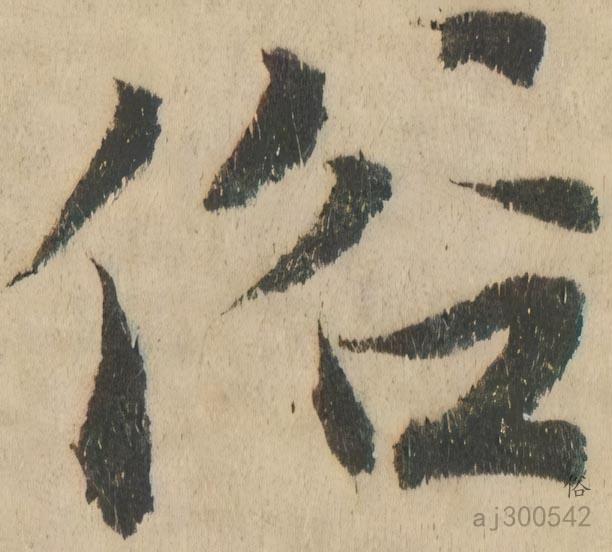 俗
俗
aj300542